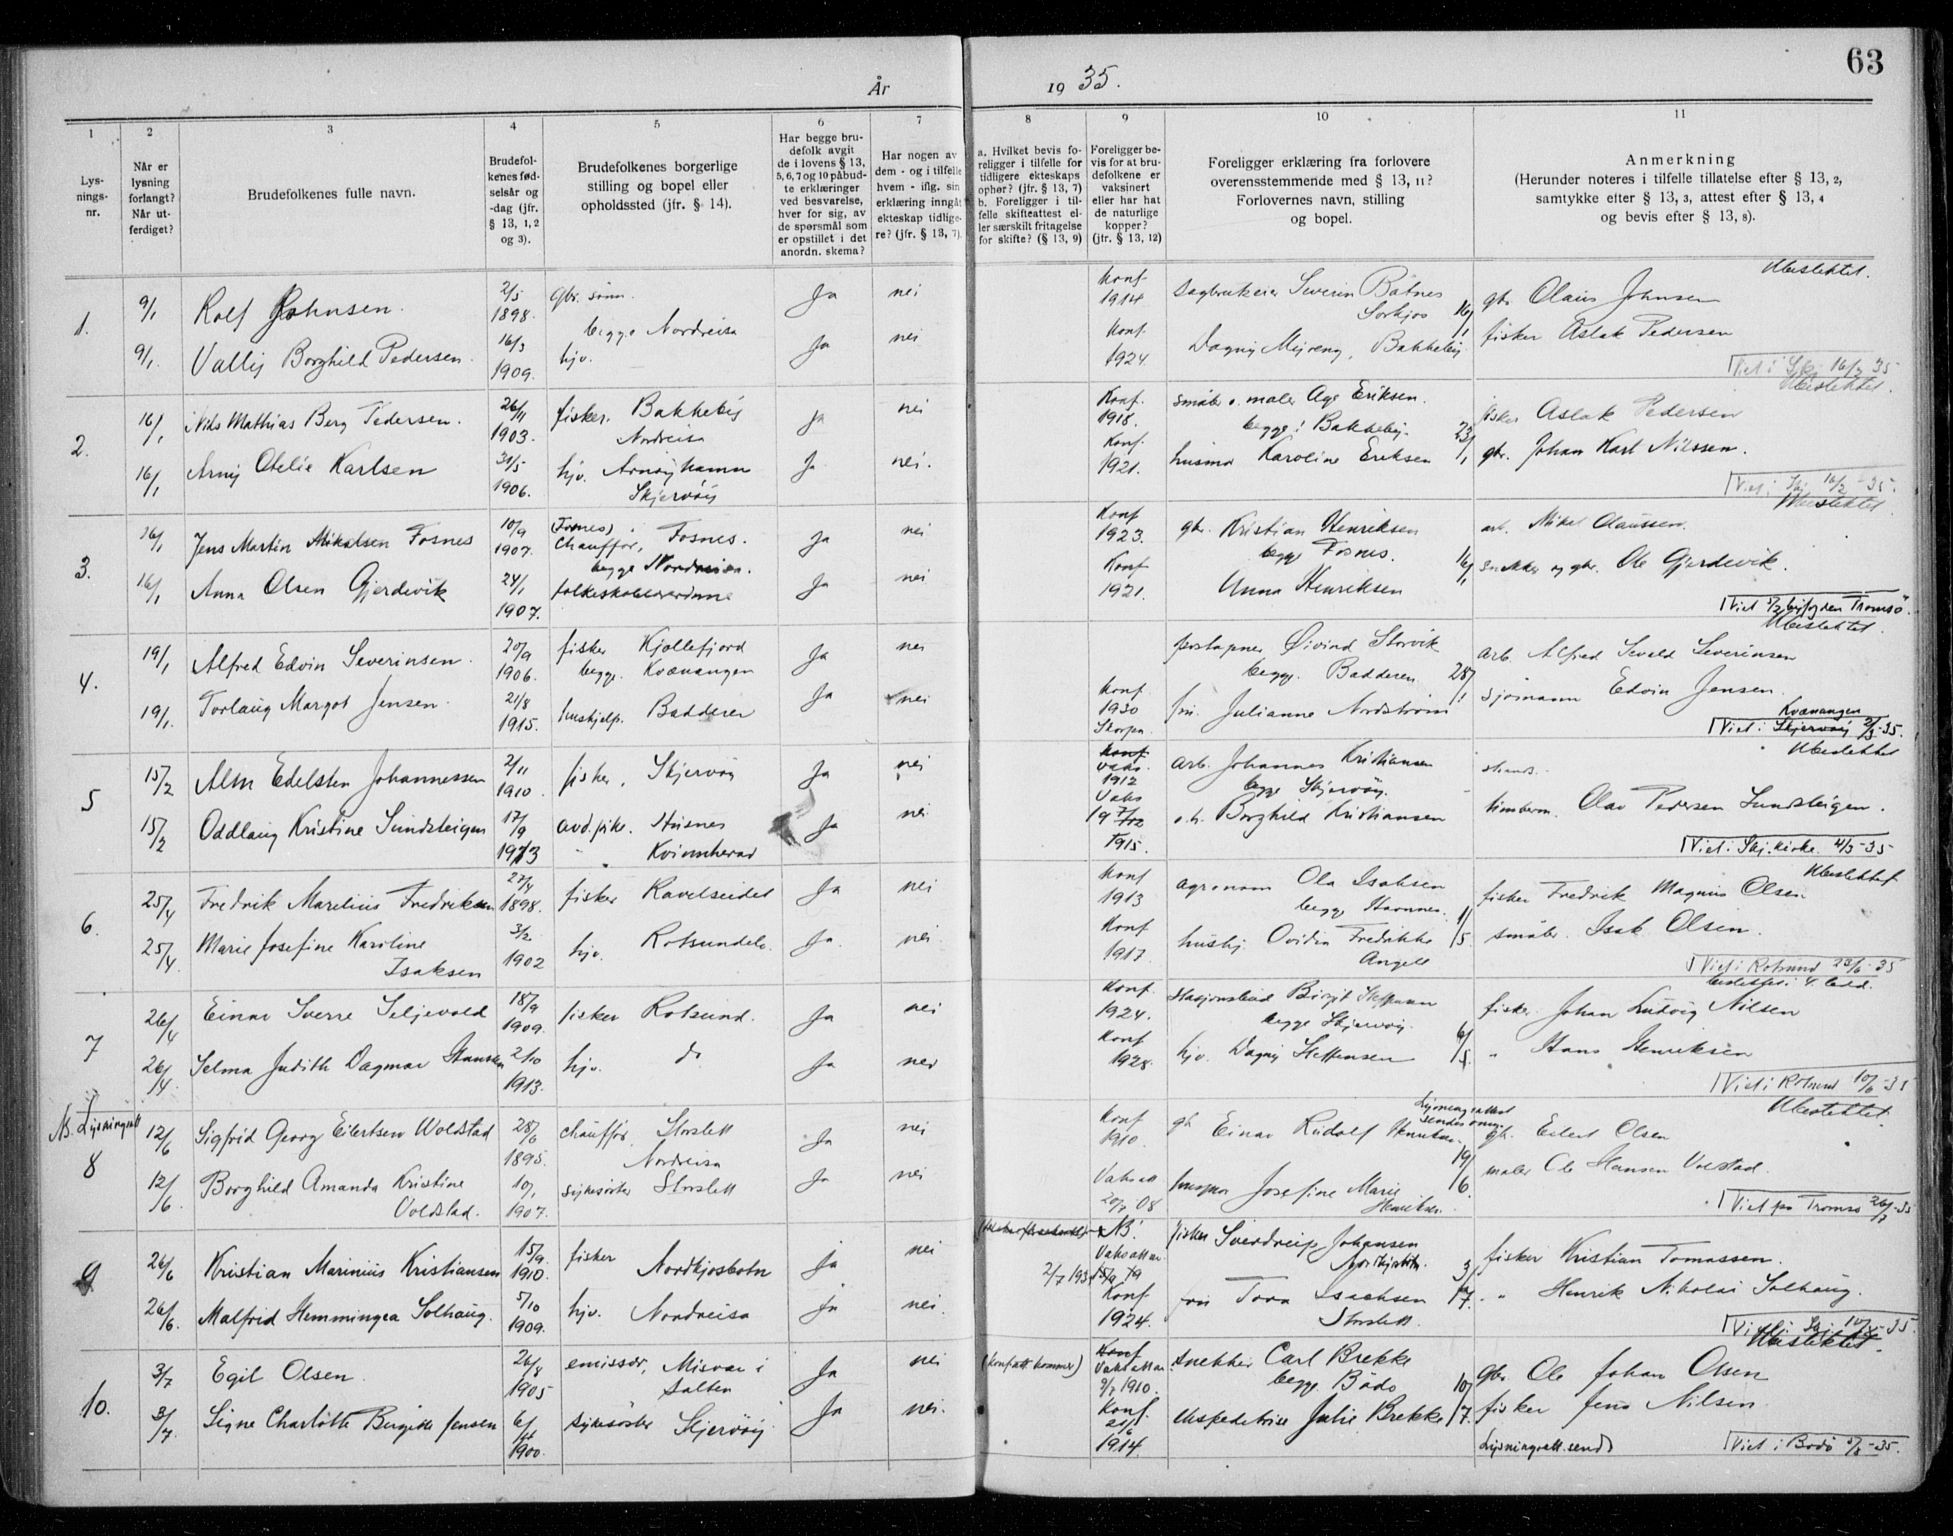 63
År 1935.
1 2 3 4 5 6 7 8 9 10 11
Lys-
nings-
nr.
Når er
lysning
forlangt?
Når ut-
ferdiget?
Brudefolkenes fulle navn.
Brudefol-
kenes fød-
selsår og
-dag (jfr.
§ 13, 1, 2
og 3).
Brudefolkenes borgerlige
stilling og bopel eller
opholdssted (jfr. § 14).
Har begge bru-
defolk avgit
de i lovens § 13,
5, 6, 7 og 10 påbud-
te erklæringer
ved besvarelse,
hver for sig, av
de spørsmål som
er opstillet i det
anordn. skema?
Har nogen av
dem - og i tilfelle
hvem - iflg. sin
erklæring inngåt
ekteskap tidlige-
re? (jfr. § 13, 7).
a. Hvilket bevis fo-
religger i tilfelle for
tidligere ekteskaps
ophør? (jfr. § 13, 7)
b. Foreligger i til-
felle skifteattest el-
ler særskilt fritagelse
for skifte? (§ 13, 9)
Foreligger be-
vis for at bru-
defolkene er
vaksinert
eller har hat
de naturlige
kopper?
(jfr. § 13, 12)
Foreligger erklæring fra forlovere
overensstemmende med § 13, 11?
Forlovernes navn, stilling
og bopel.
Anmerkning
(Herunder noteres i tilfelle tillatelse efter § 13, 2,
samtykke efter § 13, 3, attest efter § 13, 4
og bevis efter § 13, 8).
Ubeslektet.
1. 9/1 Rolf Johnsen. 2/5 1898. gbr. sønn. Ja nei Konf. 1914 Sagbrukeier Severin Båtnes gbr. Olaus Johnsen
begge Nordreisa Sørkjos 16/1
9/1. Vally Borghild Pedersen. 16/3 1909. hjv. Ja nei Konf. 1924. Dagny Myreng, Bakkeby. fisker Aslak Pedersen
Viet i Skj. 16/2 35
Ubeslektet.
2. 16/1 Nils Mathias Berg Pedersen. 26/11 1903. fisker. Bakkeby Ja nei Konf. 1918. småbr. o. maler Age Eriksen. fisker Aslak Pedersen
Nordreisa begge: Bakkeby. 23/1
16/1 Arny Otelie Karlsen 31/5 1906. hjv. Arnøyhamn Ja nei. Konf. 1921. husmor Karoline Eriksen gbr. Johan Karl Nilssen.
Skjervøy
Viet i Skj. 16/2-35.
Ubeslektet.
3. 16/1 Jens Martin Mikalsen Fosnes 10/9 1907. (Fosnes) Chauffør, Fosnes. Ja nei Konf 1923. gbr. Kristian Henriksen arb. Mikal Claussen.
begge Nordreisa. begge Fosnes. 16/1
16/1 Anna Olsen Gjerdevik 24/1 1907. folkeskolelærerinne Ja nei Konf 1921. Anna Henriksen snekker og gbr. Ole Gjerdevik.
Viet 5/2 byfogden Tromsø.
Ubeslektet.
4. 19/1 Alfred Edvin Severinsen. 20/9 1906. fisker Kjøllefjord Ja nei postapner Øivind Storvik arb. Alfred Sevald Severinsen
begge. Kvænangen begge. Badderen 28/1
19/1. Torlaug Margot Jensen. 21/8 1915. hushjelp. Badderen Ja nei Konf. 1930 frn. Julianne Nordstrøm sjømann Edvin Jensen.
Kvænangen
Viet i Skjervøy 2/3-35.
Ubeslektet
5 15/2 Alm Edelsten Johannessen 2/11 1910. fisker, Skjervøy Ja nei Konf vaks. 1912 arb. Johannes Kristiansen
begge Skjervøy.
15/2 Oddlaug Kristine Sundsteigen 17/9 1913 avd. pike. Husnes Ja nei Vaks 1915. Borghild Kristiansen timberm. Olav Pedersen Sundsteigen.
Kvinnherad
Viet i Skj. kirke 4/3-35
Ubeslektet
6. 25/4 Fredrik Marelius Fredriksen 27/4 1898. fisker Ravelseidet Ja nei Konf 1913 agronom Ola Isaksen fisker Fredrik Magnus Olsen
begge Havnnes. 11/5
25/4 Marie Josefine Karoline Isaksen 3/2 1902 hjv. Rotsundelv. Ja. nei. Konf 1917. hushj. Ovidia Fredrikke Angell småbr. Isak Olsen.
Viet i Rotsund 23/6-35
beslektet i 4. ledd.
7 26/4 Einar Sverre Seljevold 18/9 1909. fisker Rotsund. Ja nei Konf. 1924. Stasjonsbud Birgit Steffensen fisker Johan Ludvig Nilsen
begge Skjervøy. 6/5
26/4 Selma Judith Dagmar Hansen 2/10 1913. hjv. do Ja nei Konf 1928. hjv. Dagny Steffensen " Hans Henriksen
Viet i Rotsund 10/6-35
Ubeslektet.
Lysningsatt
8 12/6 Sigfrid Georg Eilertsen Woldstad 28/6 1895. chauffør, Storslett Ja nei Konf 1910. gb Einar Rudolf Henriksen gb. Eilert Olsen
Nordreisa 19/6
12/6 Borghild Amanda Kristine Voldstad. 10/1 1907. sykesøster Storslett Ja nei Vaksatt 20/7 08 husmor Josefine Marie Henriksen. maler Ole Hansen Volstad.
Viet på Tromsø 26/7-35
9 26/6 Kristian Marinius Kristiansen 15/9 1910. fisker Nordkjosbotn Ja nei 2/7 1935 NB! Vaksatt fisker Sverdreip Johansen fisker Kristian Tomassen.
Nordkjosbotn 3/7.
26/6. Malfrid Hemmingea Solhaug. 5/10 1909. hjv. Nordreisa Ja nei. Konf 1924. frn Tora Isachsen Storslett. " Henrik Nikolai Solhaug.
Viet i Skj. 10/7-35.
Ubeslektet.
10. 3/7 Egil Olsen. 26/8 1905 emissær, Misvær i Salten Ja nei (konf.att. kommer) Konf Vaksatt 9/7 1910. snekker Carl Brekke gbr. Ole Johan Olsen
begge Bodø 10/7.
3/7 Signe Charlotte Birgitte Jensen 6/11 1900. sykesøster Skjervøy Ja nei. Konf. 21/6 1914. ekspeditrise Julie Brekke fisker Jens Nilsen.
Lysningsatt. sendt Viet i Bodø 5/8-35.